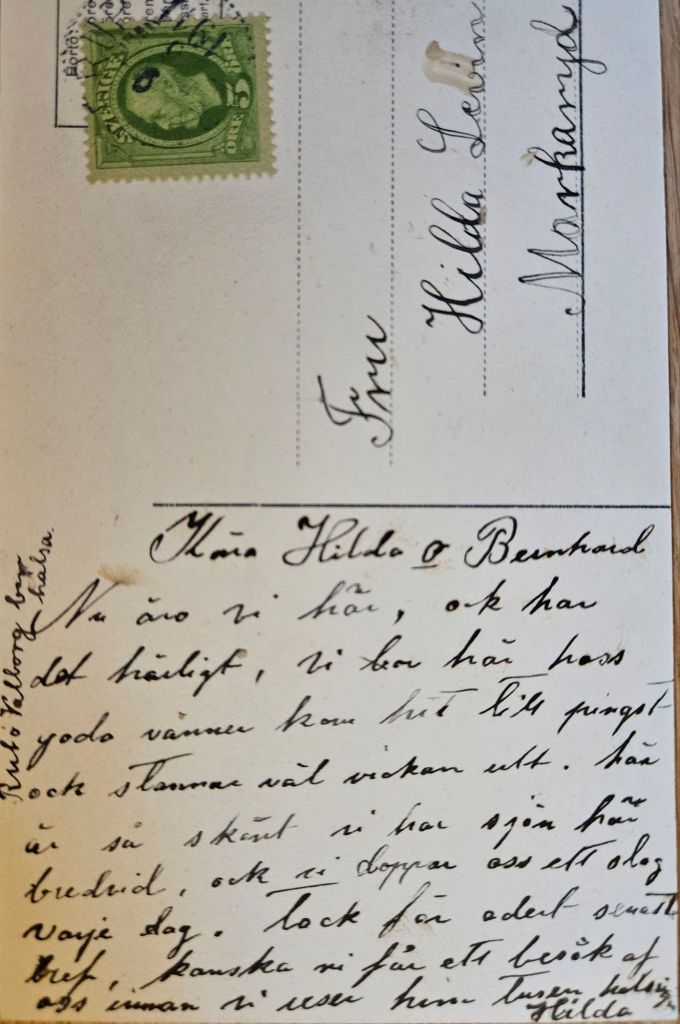 Porto:
SVERIGE
5 ÖRE
Fru
Hilda Levin
Markaryd
Kära Hilda o Bernhard
Nu äro vi här, ock har
det härligt, vi bor här hoss
goda vänner kom hit till pingst
ock stannar väl vickan utt. här
är så skönt vi har sjön här
bredvid, ock vi doppar oss ett slag
varje dag. Tack för edert senaste
bref, kanska vi får ett besök af
oss innan vi reser hem tusen
Hilda
Valborg
hälsa.